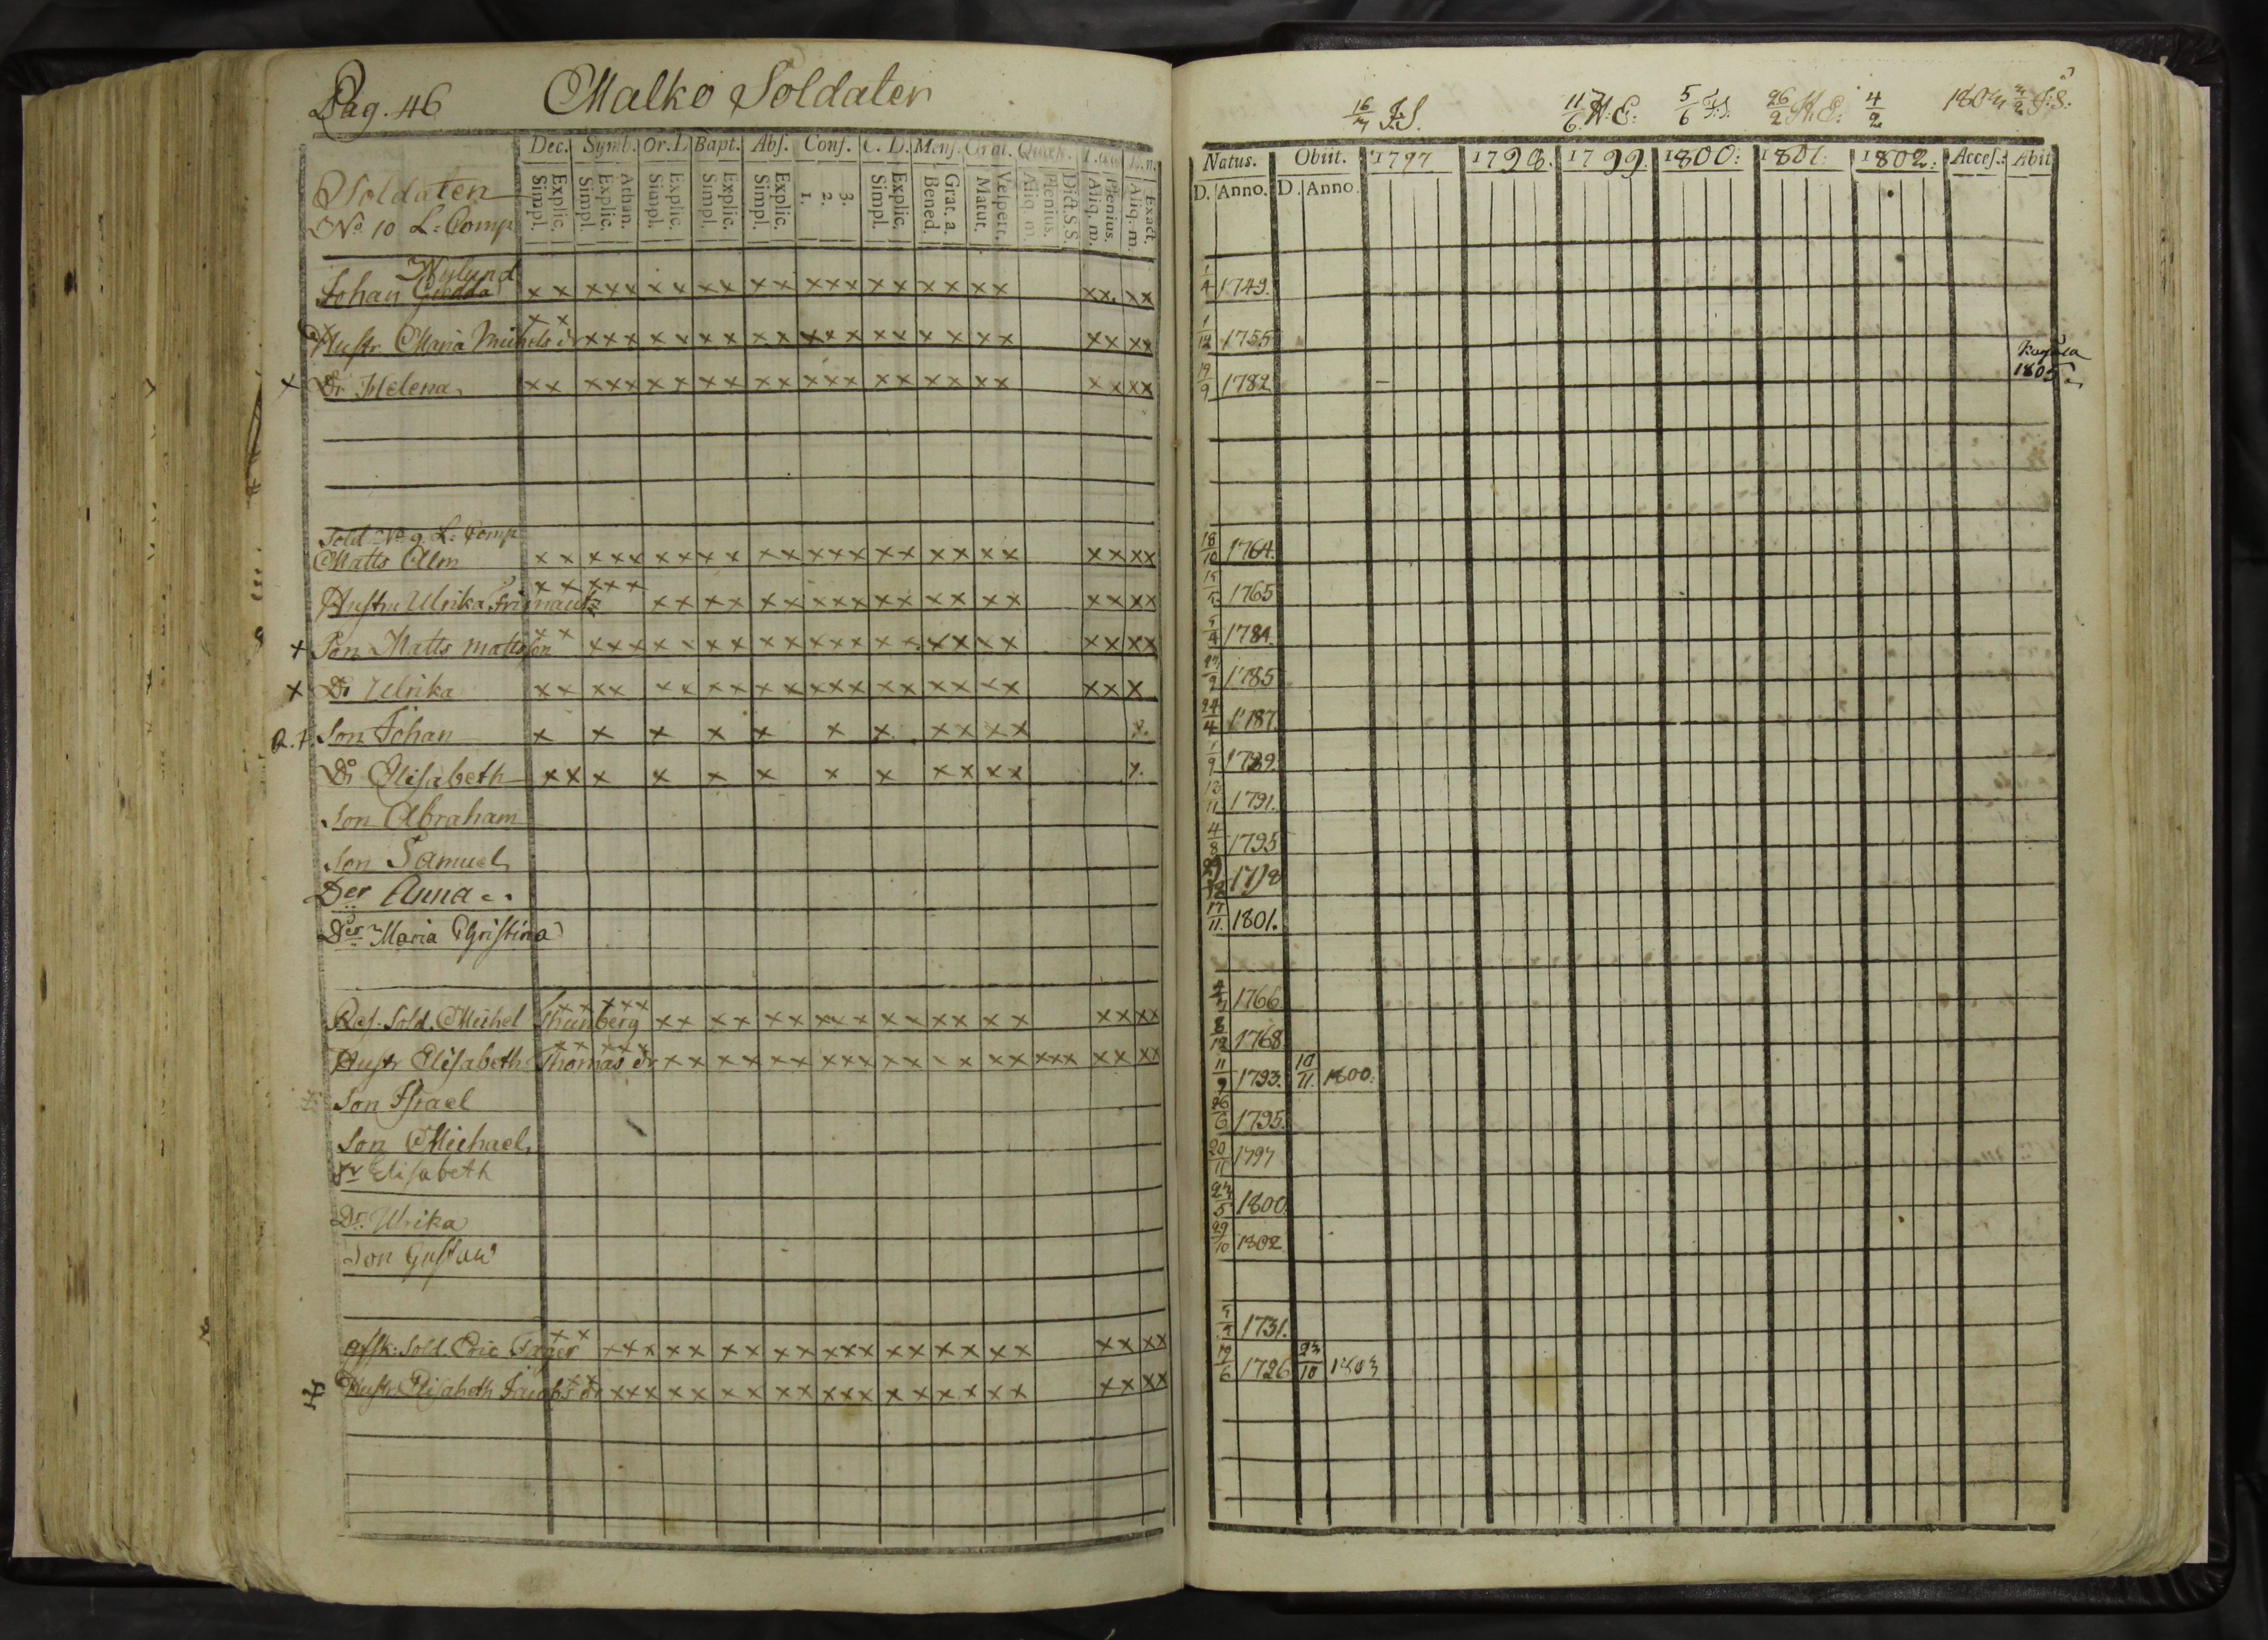 Pag. 46 Malko Soldater
Dec. Symb. Or. D Bapt. Abs. Conf. C. D. Mens. Grat. Quæst.
Explic. Simpl. Athan. Explic. Simpl. Explic. Simpl. Explic. Simpl. Explic. Simpl. 3. 2. 1. Explic. Simpl. Grat. a. Bened. Vespert. Matut. Dict. S.S. Plenius. Aliq. m. Plenius. Aliq. m. Exact. Aliq. m.
Soldaten
No 10 L. Comp
Nylund
Johan Giedda x x x x x x x x x x x x x x x x x x x x x x x x
Hustr Maria Michels dr x x x x x x x x x x x x x x x x x x x x x x x x
x Dr Helena x x x x x x x x x x x x x x x x x x x x x x x x
Sold No 9 L. Comp
Matts Alm x x x x x x x x x x x x x x x x x x x x x x x x
Hustru Ulrika x x x x x x x x x x x x x x x x x x x x x x x x
x Son Matts mattsson x x x x x x x x x x x x x x x x x x x x x x x x
x Dr Ulrika x x x x x x x x x x x x x x x x x x x x x x
Son Johan x x x x x x x x x x x x
Dr Elisabeth x x x x x x x x x x x x x
Son Abraham
Son Samuel
Der Anna
Der Maria Christina
Res. Sold. Michel Thunberg x x x x x x x x x x x x x x x x x x x x x x x x
Hustr Elisabeth Thomas dr x x x x x x x x x x x x x x x x x x x x x x x x x x x
Son Israel
Son Michael
Dr Elisabeth
Dr. Ulrika
Son Gustaw
afsk. Sold. Eric Jæger x x x x x x x x x x x x x x x x x x x x x x x x
Hustr Elisabeth Jacobs dr x x x x x x x x x x x x x x x x x x x x x x x x
16/7 J.S. 11/6 H. E. 5/6 J.S. 26/2 H. E. 4/2 1803 3/2 J. S.
Natus. Obiit. 1797 1798. 1799. 1800: 1801: 1802: Access. Abit
D. Anno. D. Anno.
1/4 1749.
1/12 1755
19/9 1782 1805
18/10 1764.
1765
5/4 1784.
1785
24/4 1787.
1/9 1789.
13/11 1791.
4/8 1795
1798
17/11 1801.
4/7 1766
8/12 1768
11/9 1793. 10/11 1800.
26/6 1795.
20/11 1797
23/5 1800.
29/10 1802
1731.
19/6 1726 23/10 1803